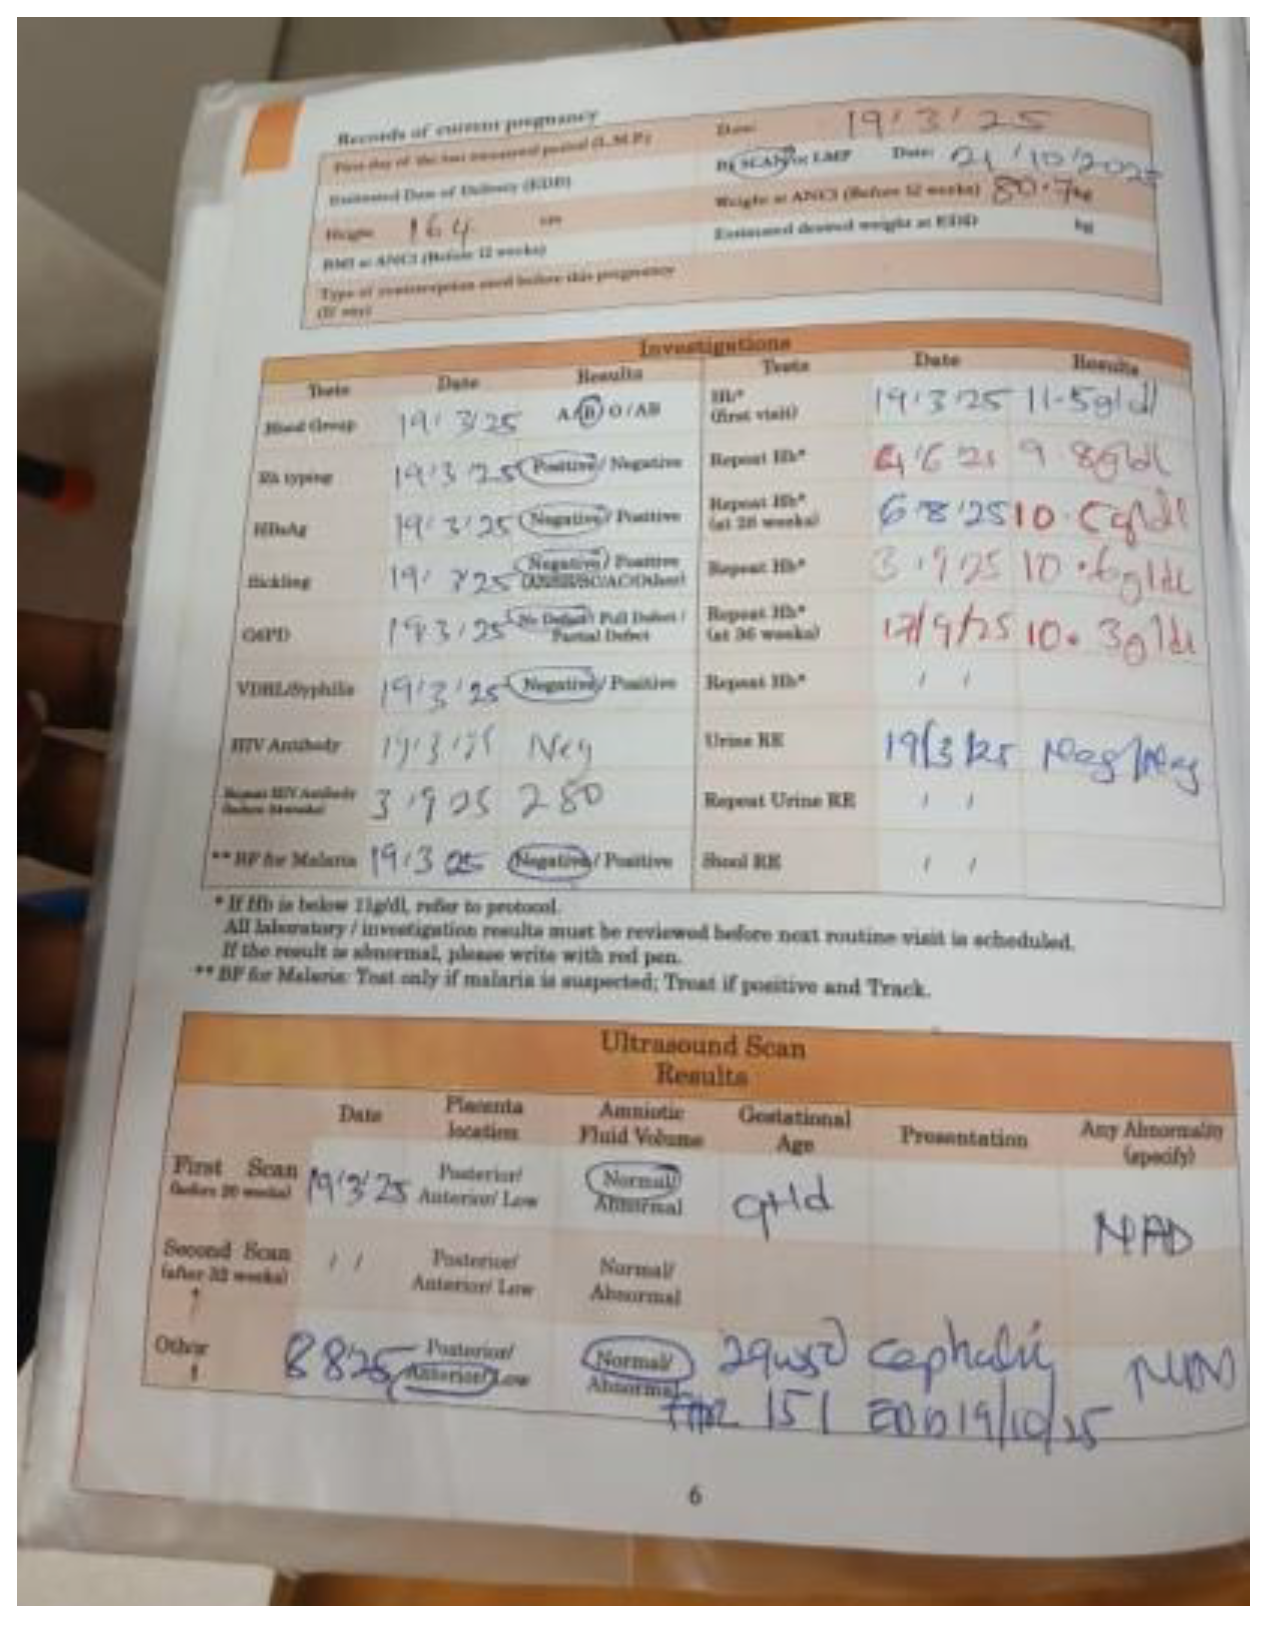 Records of current pregnancy
First day of the last menstrual period (L.M.P.) Date: 19/3/25
Estimated Date of Delivery (EDD) By SCAN or LMP Date: 21/10/2025
Height 164 cm Weight at ANC1 (Before 12 weeks) 80.7 kg
BMI at ANC1 (Before 12 weeks) Estimated desired weight at EDD kg
Type of contraception used before this pregnancy
(If any)
Investigations
Tests Date Results Tests Date Results
Blood Group 19/3/25 A/B/O/AB Hb* (first visit) 19/3/25 11.5g/dl
Rh typing 19/3/25 Positive/Negative Repeat Hb* 9.8g/dl
HBsAg 19/3/25 Negative/Positive Repeat Hb* (at 28 weeks) 6/8/25 10.
Sickling 19/ /25 Negative/Positive Repeat Hb* 3/9/25 10.6g/dl
G6PD 19/3/25 No Defect/Full Defect/ Partial Defect Repeat Hb* (at 36 weeks) 17/9/25 10.3g/dl
VDRL/Syphilis 19/3/25 Negative/Positive Repeat Hb* / /
HIV Antibody 19/3/25 Neg Urine RE 19/3/25 Neg/Neg
Repeat HIV Antibody 3/9/25 280 Repeat Urine RE / /
** BF for Malaria 19/3/25 Negative/Positive Stool RE / /
* If Hb is below 11g/dl, refer to protocol.
All laboratory / investigation results must be reviewed before next routine visit is scheduled.
If the result is abnormal, please write with red pen.
** BF for Malaria: Test only if malaria is suspected; Treat if positive and Track.
Ultrasound Scan
Results
Date Placenta location Amniotic Fluid Volume Gestational Age Presentation Any Abnormality (specify)
First Scan (before 20 weeks) 19/3/25 Posterior/ Anterior/ Low Normal/ Abnormal NAD
Second Scan (after 32 weeks) / / Posterior/ Anterior/ Low Normal/ Abnormal
Other 8 8 25 Posterior/ Anterior/ Low Normal/ Abnormal cephalic
FHR 151 EDD 19/10/25
6